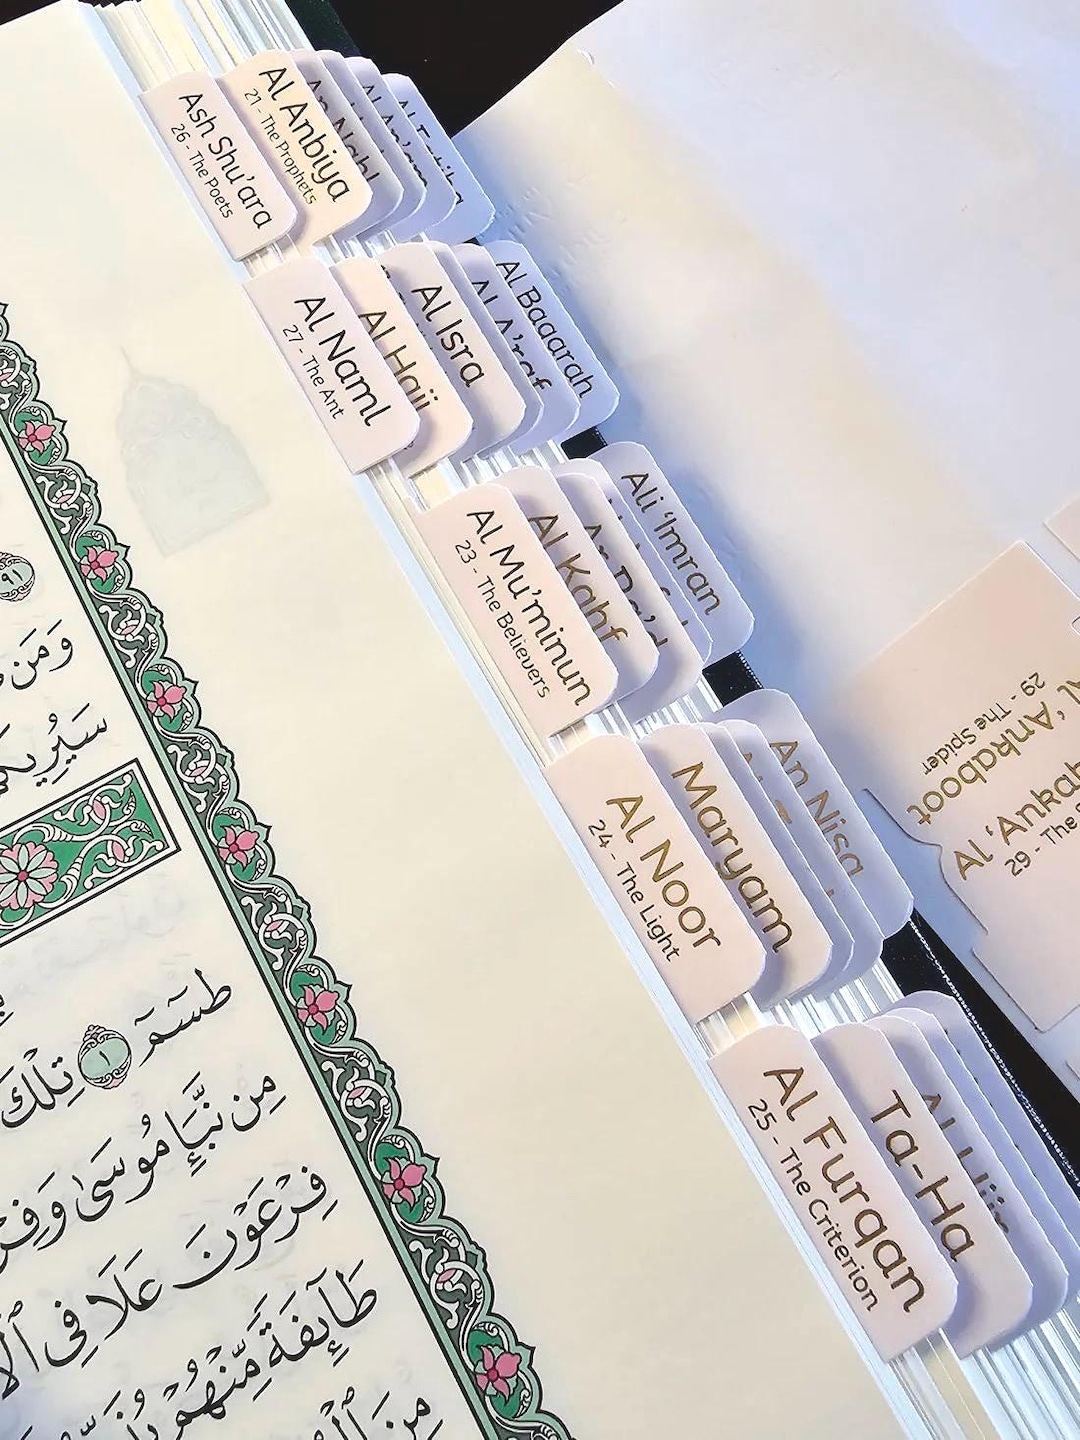 Ash Shu'ara
26 - The Poets
Al Anbiya
21 - The Prophets
An Nahl
Al Naml
27 - The Ant
Al Hajj
Al Isra
Al A'raf
Al Baqarah
Al Mu'minun
23 - The Believers
Al Kahf
Ar Ra'd
Ali 'Imran
Al Noor
24 - The Light
Maryam
An Nisa
Al Furqan
25 - The Criterion
Ta-Ha
Al 'Ankaboot
29 - The Spider
Al 'Anka
29 - The
٩١
وَمَن
سَيُرِيكُمْ
طسٓمٓ ١ تِلْكَ
مِن نَّبَإِ مُوسَىٰ وَفِرْ
فِرْعَوْنَ عَلَا فِى ٱلْأَ
طَآئِفَةً مِّنْهُمْ
مِنَ